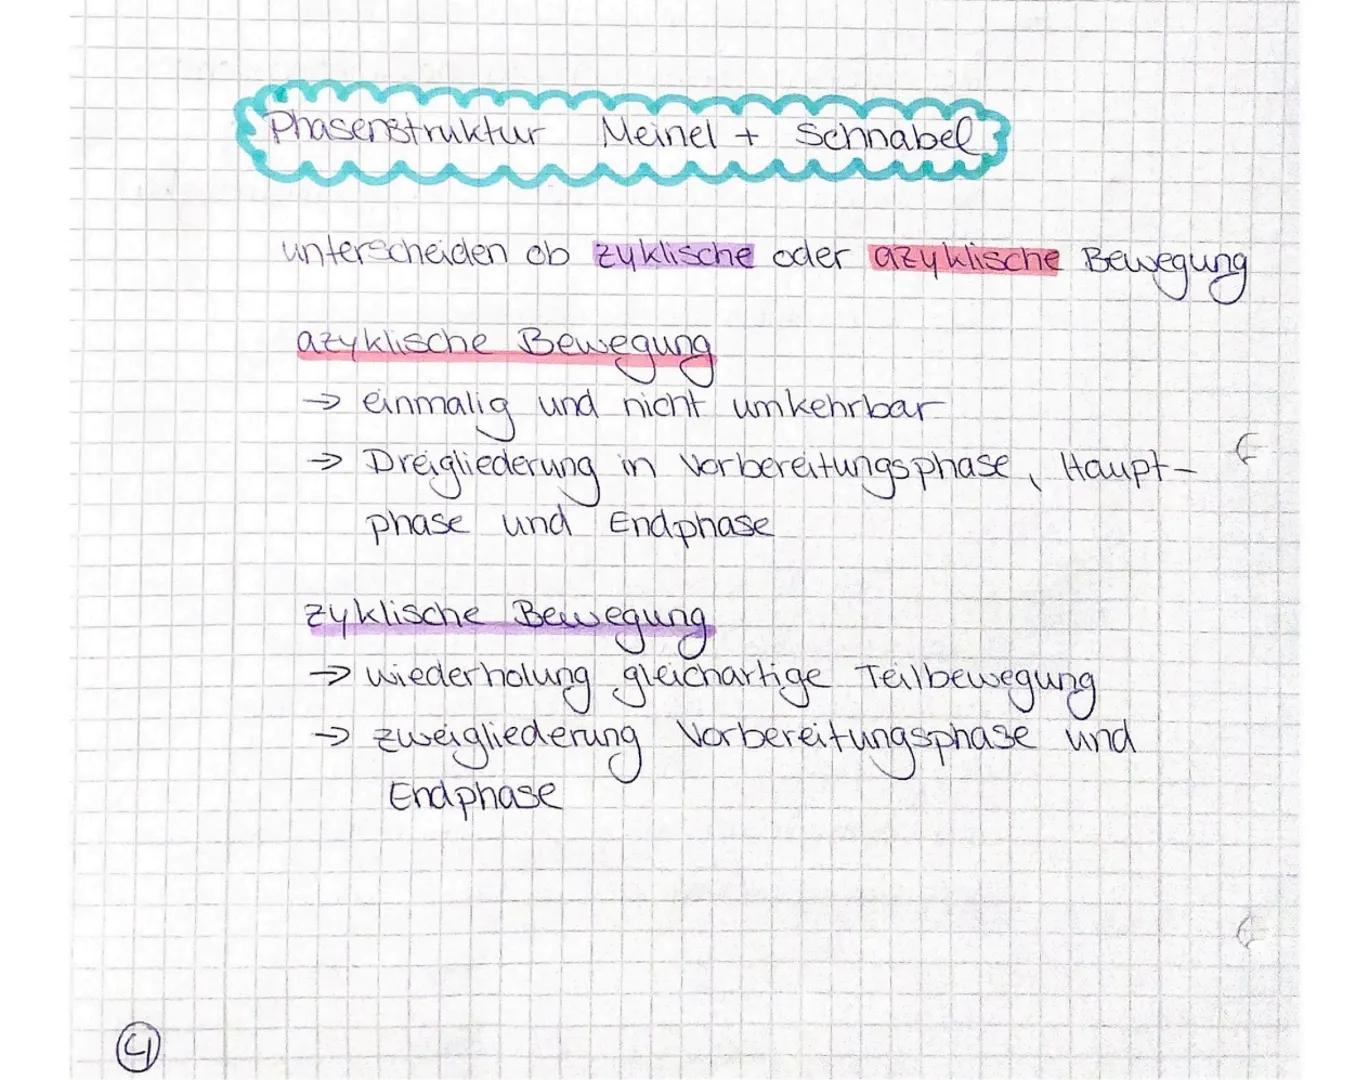 Phasenstruktur Meinel + Schnabel
unterscheiden ob zyklische oder azyklische Bewegung
azyklische Bewegung
→ einmalig und nicht umkehrbar
→ Dreigliederung in Vorbereitungsphase, Haupt-
phase und Endphase
zyklische Bewegung
→ wiederholung gleichartige Teilbewegung
→ zweigliederung Vorbereitungsphase und
Endphase
4